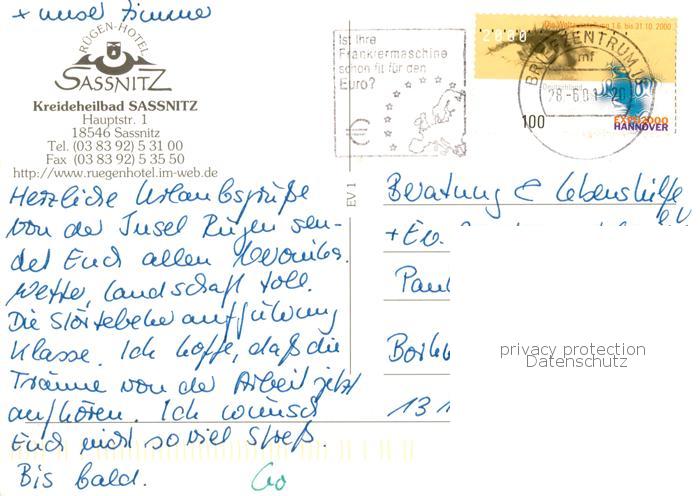 + unser Zimmer
RÜGEN-HOTEL
SASSNITZ
Kreideheilbad SASSNITZ
Hauptstr. 1
18546 Sassnitz
Tel. (03 83 92) 5 31 00
Fax (03 83 92) 5 35 50
http://www.ruegenhotel.im-web.de
Herzliche Urlaubsgrüße
von der Insel Rügen sen-
det Euch allen Veronika.
Wetter, Landschaft toll.
Die Störtebekeraufführung
Klasse. Ich hoffe, daß die
Träume von der Arbeit jetzt
aufhören. Ich wünsch
Euch nicht so viel Streß.
Bis bald.
EV 1
Ist Ihre
Frankiermaschine
schon fit für den
Euro?
Die Weltausstellung 1.6. bis 31.10. 2000
2000
BRIEFZENTRUM 18
mf
Deutschland
100
EXPO2000
HANNOVER
Beratung & Lebenshilfe
e.V.
+ Ev.
Paul
13 1
privacy protection
Datenschutz